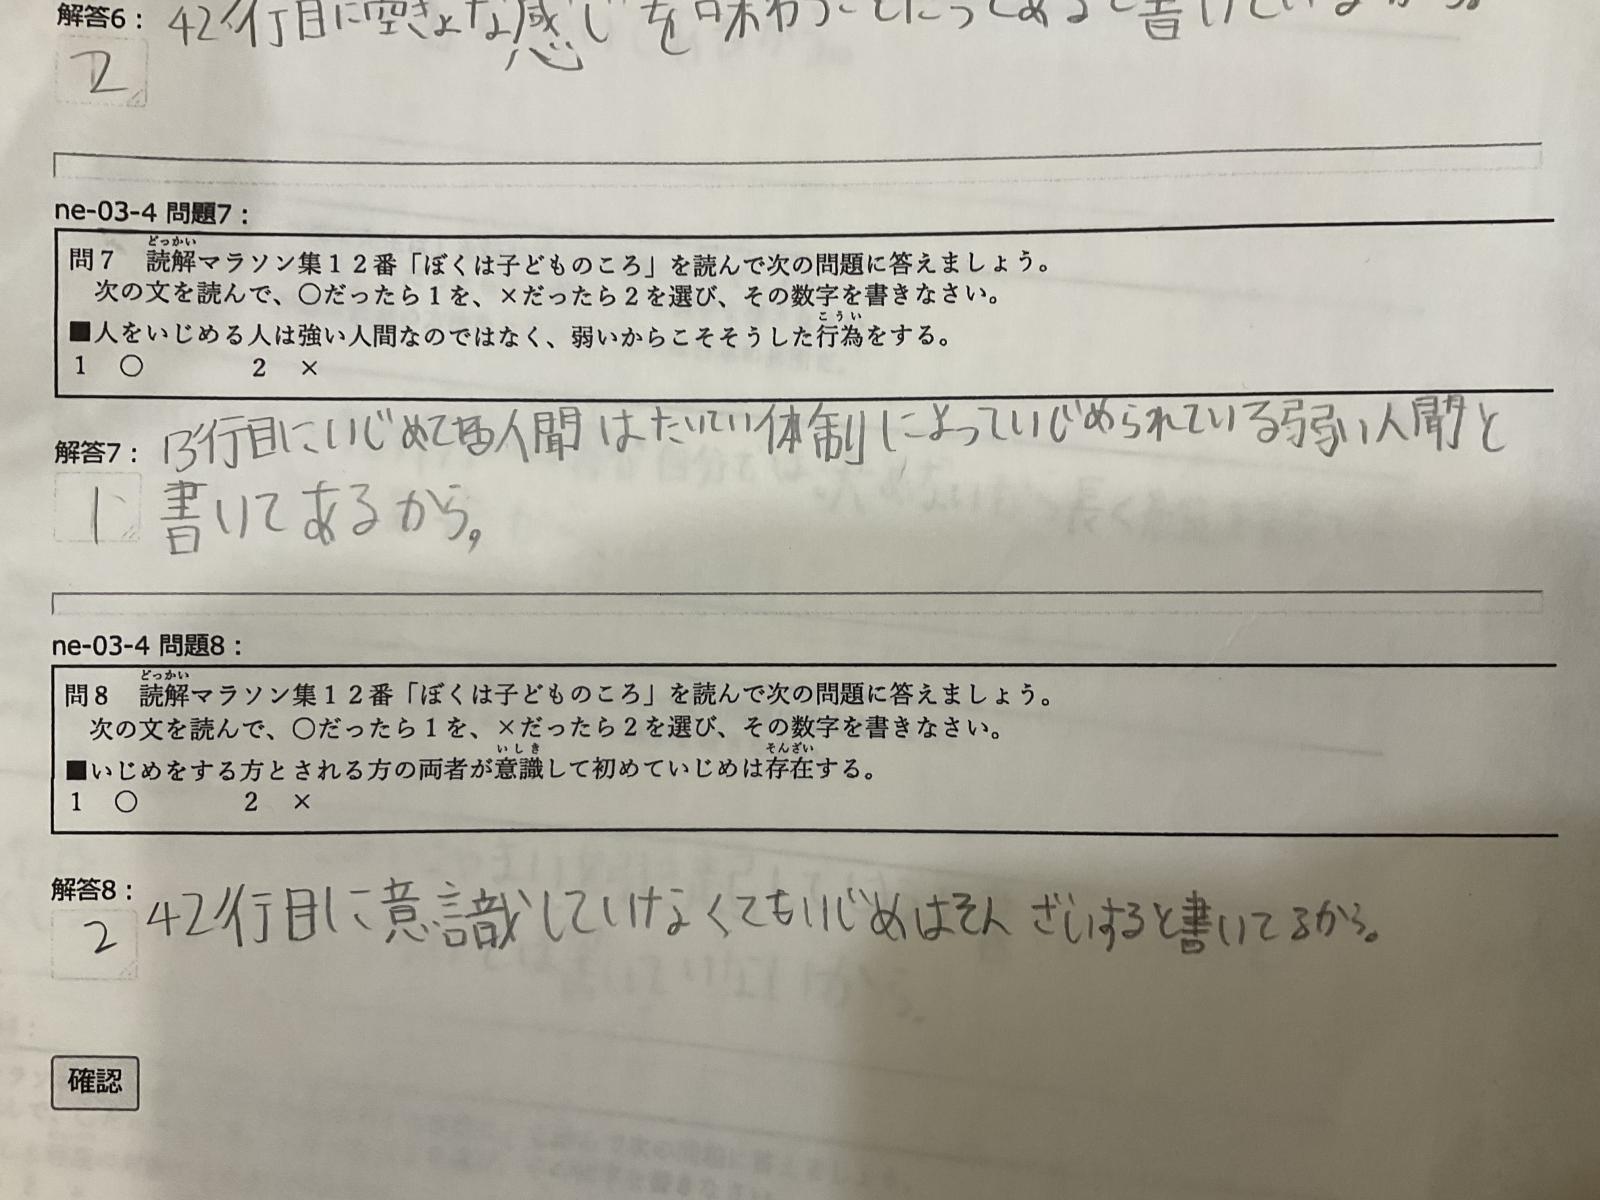 解答6： 42行目に空きょな感じを味わうことだってあると書けているから。
2
ne-03-4 問題7：
どっかい
問７　読解マラソン集１２番「ぼくは子どものころ」を読んで次の問題に答えましょう。
次の文を読んで、○だったら１を、×だったら２を選び、その数字を書きなさい。
こうい
■人をいじめる人は強い人間なのではなく、弱いからこそそうした行為をする。
1　○　2　×
解答7： 13行目にいじめてる人間はたいてい体制によっていじめられている弱い人間と
1 書いてあるから。
ne-03-4 問題8：
どっかい
問８　読解マラソン集１２番「ぼくは子どものころ」を読んで次の問題に答えましょう。
次の文を読んで、○だったら１を、×だったら２を選び、その数字を書きなさい。
いしき　そんざい
■いじめをする方とされる方の両者が意識して初めていじめは存在する。
1　○　2　×
解答8： 42行目に意識していなくてもいじめはそんざいすると書いてるから。
2
確認